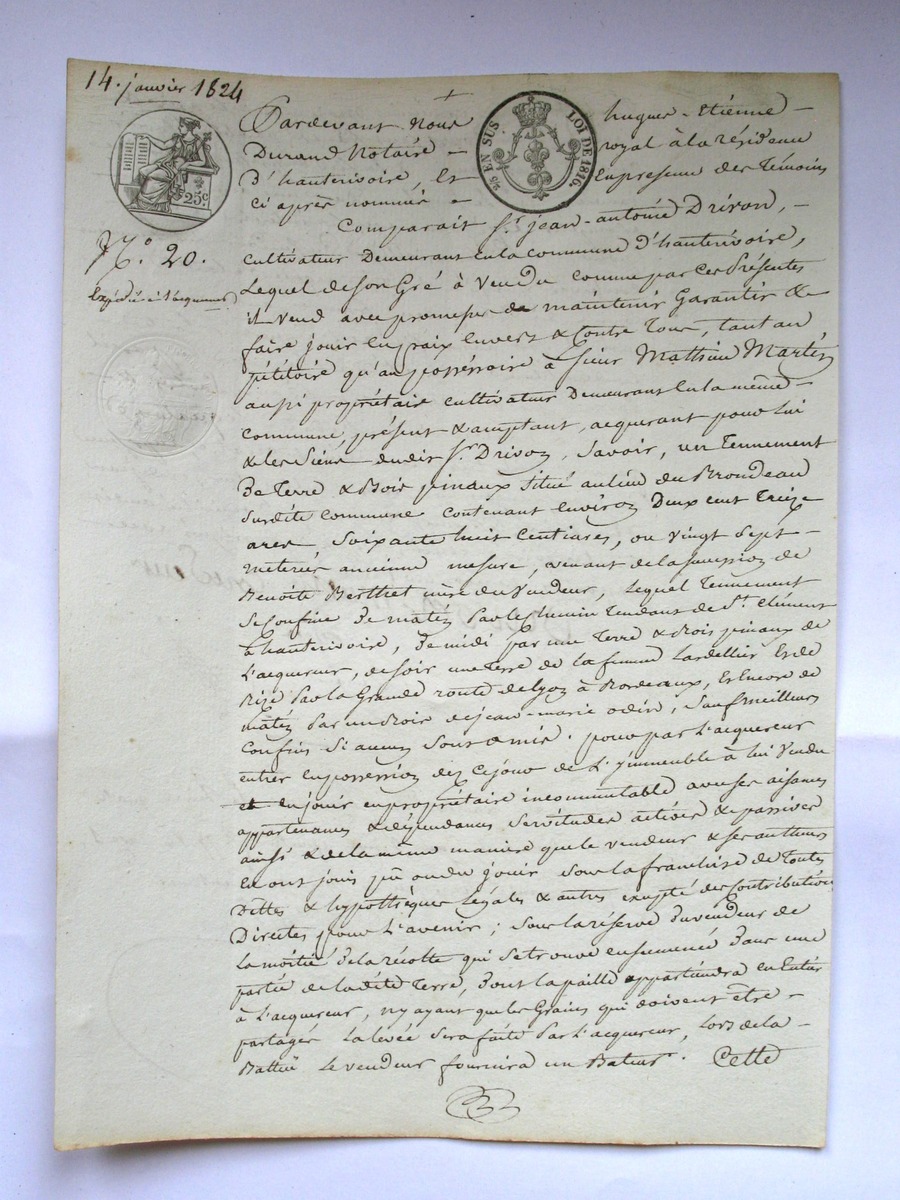 14. janvier 1824
Pardevant Nous hugues-Etienne -
Durand Notaire - royal à la résidence
D'hauterivoire, Et En presence des Témoins
Ci après nommés -
EN SUS LOI DE 1816.
25c
N.º 20.
Expédié à l'acquereur
Comparait Sr. jean-antoine Drivon, -
Cultivateur Demeurant En la commune D'hauterivoire,
Lequel de son Gré à Vendu comme par Ces Présentes
il Vend avec promesse de maintenir Garantir &
faire jouir En paix Envers & Contre Tous, tant au
pétitoire qu'au possessoire à Sieur Mathieu Martin
aussi propriétaire cultivateur Demeurant En la même -
Commune, présent & acceptant, acquerant pour lui
& les Siens dudit Sr. Drivon, Savoir, un Tennement
De Terre & Bois pinaux Situé au lieu du Brondeau
Surdite Commune Contenant Environ Deux cent Treize
ares Soixante huit Centiares, ou Vingt Sept -
meterées ancienne mesure, venant de la succession de
Benoite Berthet mère du Vendeur, Lequel Tennement
Se Confine De matin Par le Chemin Tendant de St. Clément
à hauterivoire, De midi par une Terre & Bois pinaux de
L'acquereur, de soir une Terre de la femme Lardellier Et de
Bize Par la Grande route de Lyon à Bordeaux, Et Encore de
matin Par un Bois de jean-marie odin, Sauf meilleurs
Confins Si aucuns Sont omis. pour par L'acquereur
entrer En possession dez Ce jour de L'immeuble à lui Vendu
et En jouir en propriétaire incommutable avec ses aisances
appartenances & dépendances Servitudes actives & passives
ainsi & de la même maniere que le vendeur & ses auteurs
En ont joui pû ou du jouir Sous la franchise de Toutes
Dettes & hypothèques Légales & autres excepté des Contributions
Directes pour L'avenir ; Sous la réserve du vendeur de
La moitié de la récolte qui se trouve ensemencé Dans une
partie de ladite Terre, Dont la paille appartiendra en Entier
à L'acquereur, n'y ayant que les Grains qui doivent être -
partagés La levée Sera faite Par L'acquereur, Lors de la -
Battue Le vendeur fournira un Bateur. Cette